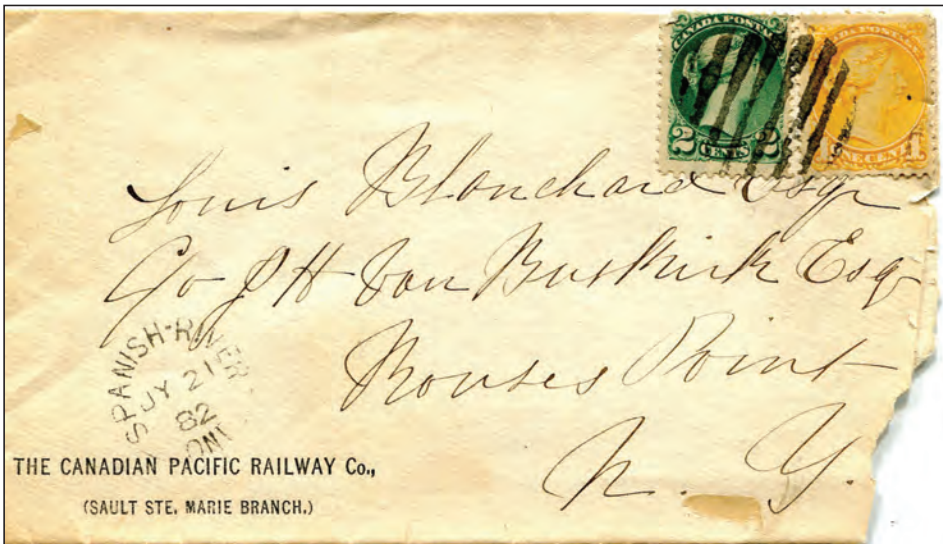 CANADA POSTAGE
2 CENTS 2
CANADA POSTAGE
ONE CENT 1
Louis Blanchard Esqr
C/o J H Van Buskirk Esqr
Rouses Point
N. Y.
SPANISH-RIVER
JY 21
82
ONT
THE CANADIAN PACIFIC RAILWAY Co.,
(SAULT STE. MARIE BRANCH.)